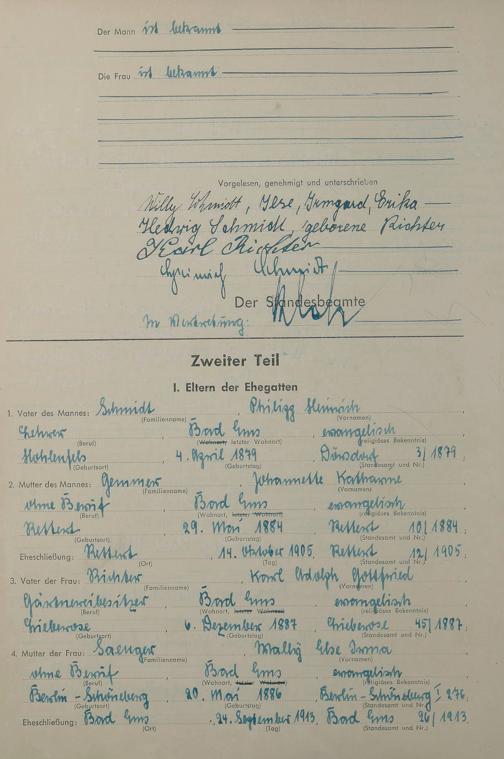 Der Mann ist bekannt
Die Frau ist bekannt
Vorgelesen, genehmigt und unterschrieben
Willy Schmidt, Ilse, Irmgard, Erika
Hedwig Schmidt, geborene Richter
Karl Richter
Heinrich Schmidt
Der Standesbeamte
In Vertretung:
Zweiter Teil
I. Eltern der Ehegatten
1. Vater des Mannes: Schmidt, Philipp Heinrich,
(Familienname) (Vornamen)
Lehrer, Bad Ems, evangelisch
(Beruf) (Wohnort, letzter Wohnort) (religiöses Bekenntnis)
Hohlenfels, 4. April 1879 Dörsdorf 3/1879,
(Geburtsort) (Geburtstag) (Standesamt und Nr.)
2. Mutter des Mannes: Gemmer, Johannette Katharine,
(Familienname) (Vornamen)
ohne Beruf, Bad Ems, evangelisch
(Beruf) (Wohnort, letzter Wohnort) (religiöses Bekenntnis)
Rettert, 29. Mai 1884 Rettert 10/1884,
(Geburtsort) (Geburtstag) (Standesamt und Nr.)
Eheschließung: Rettert, 14. Oktober 1905, Rettert 12/1905,
(Ort) (Tag) (Standesamt und Nr.)
3. Vater der Frau: Richter, Karl Adolph Gottfried,
(Familienname) (Vornamen)
Gärtnereibesitzer, Bad Ems, evangelisch
(Beruf) (Wohnort, letzter Wohnort) (religiöses Bekenntnis)
Grieberose, 6. Dezember 1887 Grieberose 45/1887,
(Geburtsort) (Geburtstag) (Standesamt und Nr.)
4. Mutter der Frau: Saenger, Wally Else Irma,
(Familienname) (Vornamen)
ohne Beruf, Bad Ems, evangelisch
(Beruf) (Wohnort, letzter Wohnort) (religiöses Bekenntnis)
Berlin-Schöneberg, 20. Mai 1886 Berlin-Schöneberg I 276,
(Geburtsort) (Geburtstag) (Standesamt und Nr.)
Eheschließung: Bad Ems, 24. September 1913, Bad Ems 26/1913,
(Ort) (Tag) (Standesamt und Nr.)